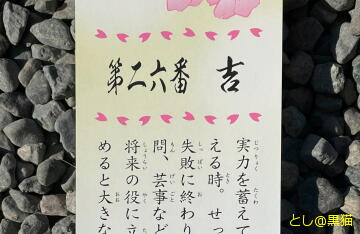 第二六番 吉
実力を蓄えて
える時。せっ
失敗に終わり
問、芸事など
将来の役に立
めると大きな
とし@黒猫